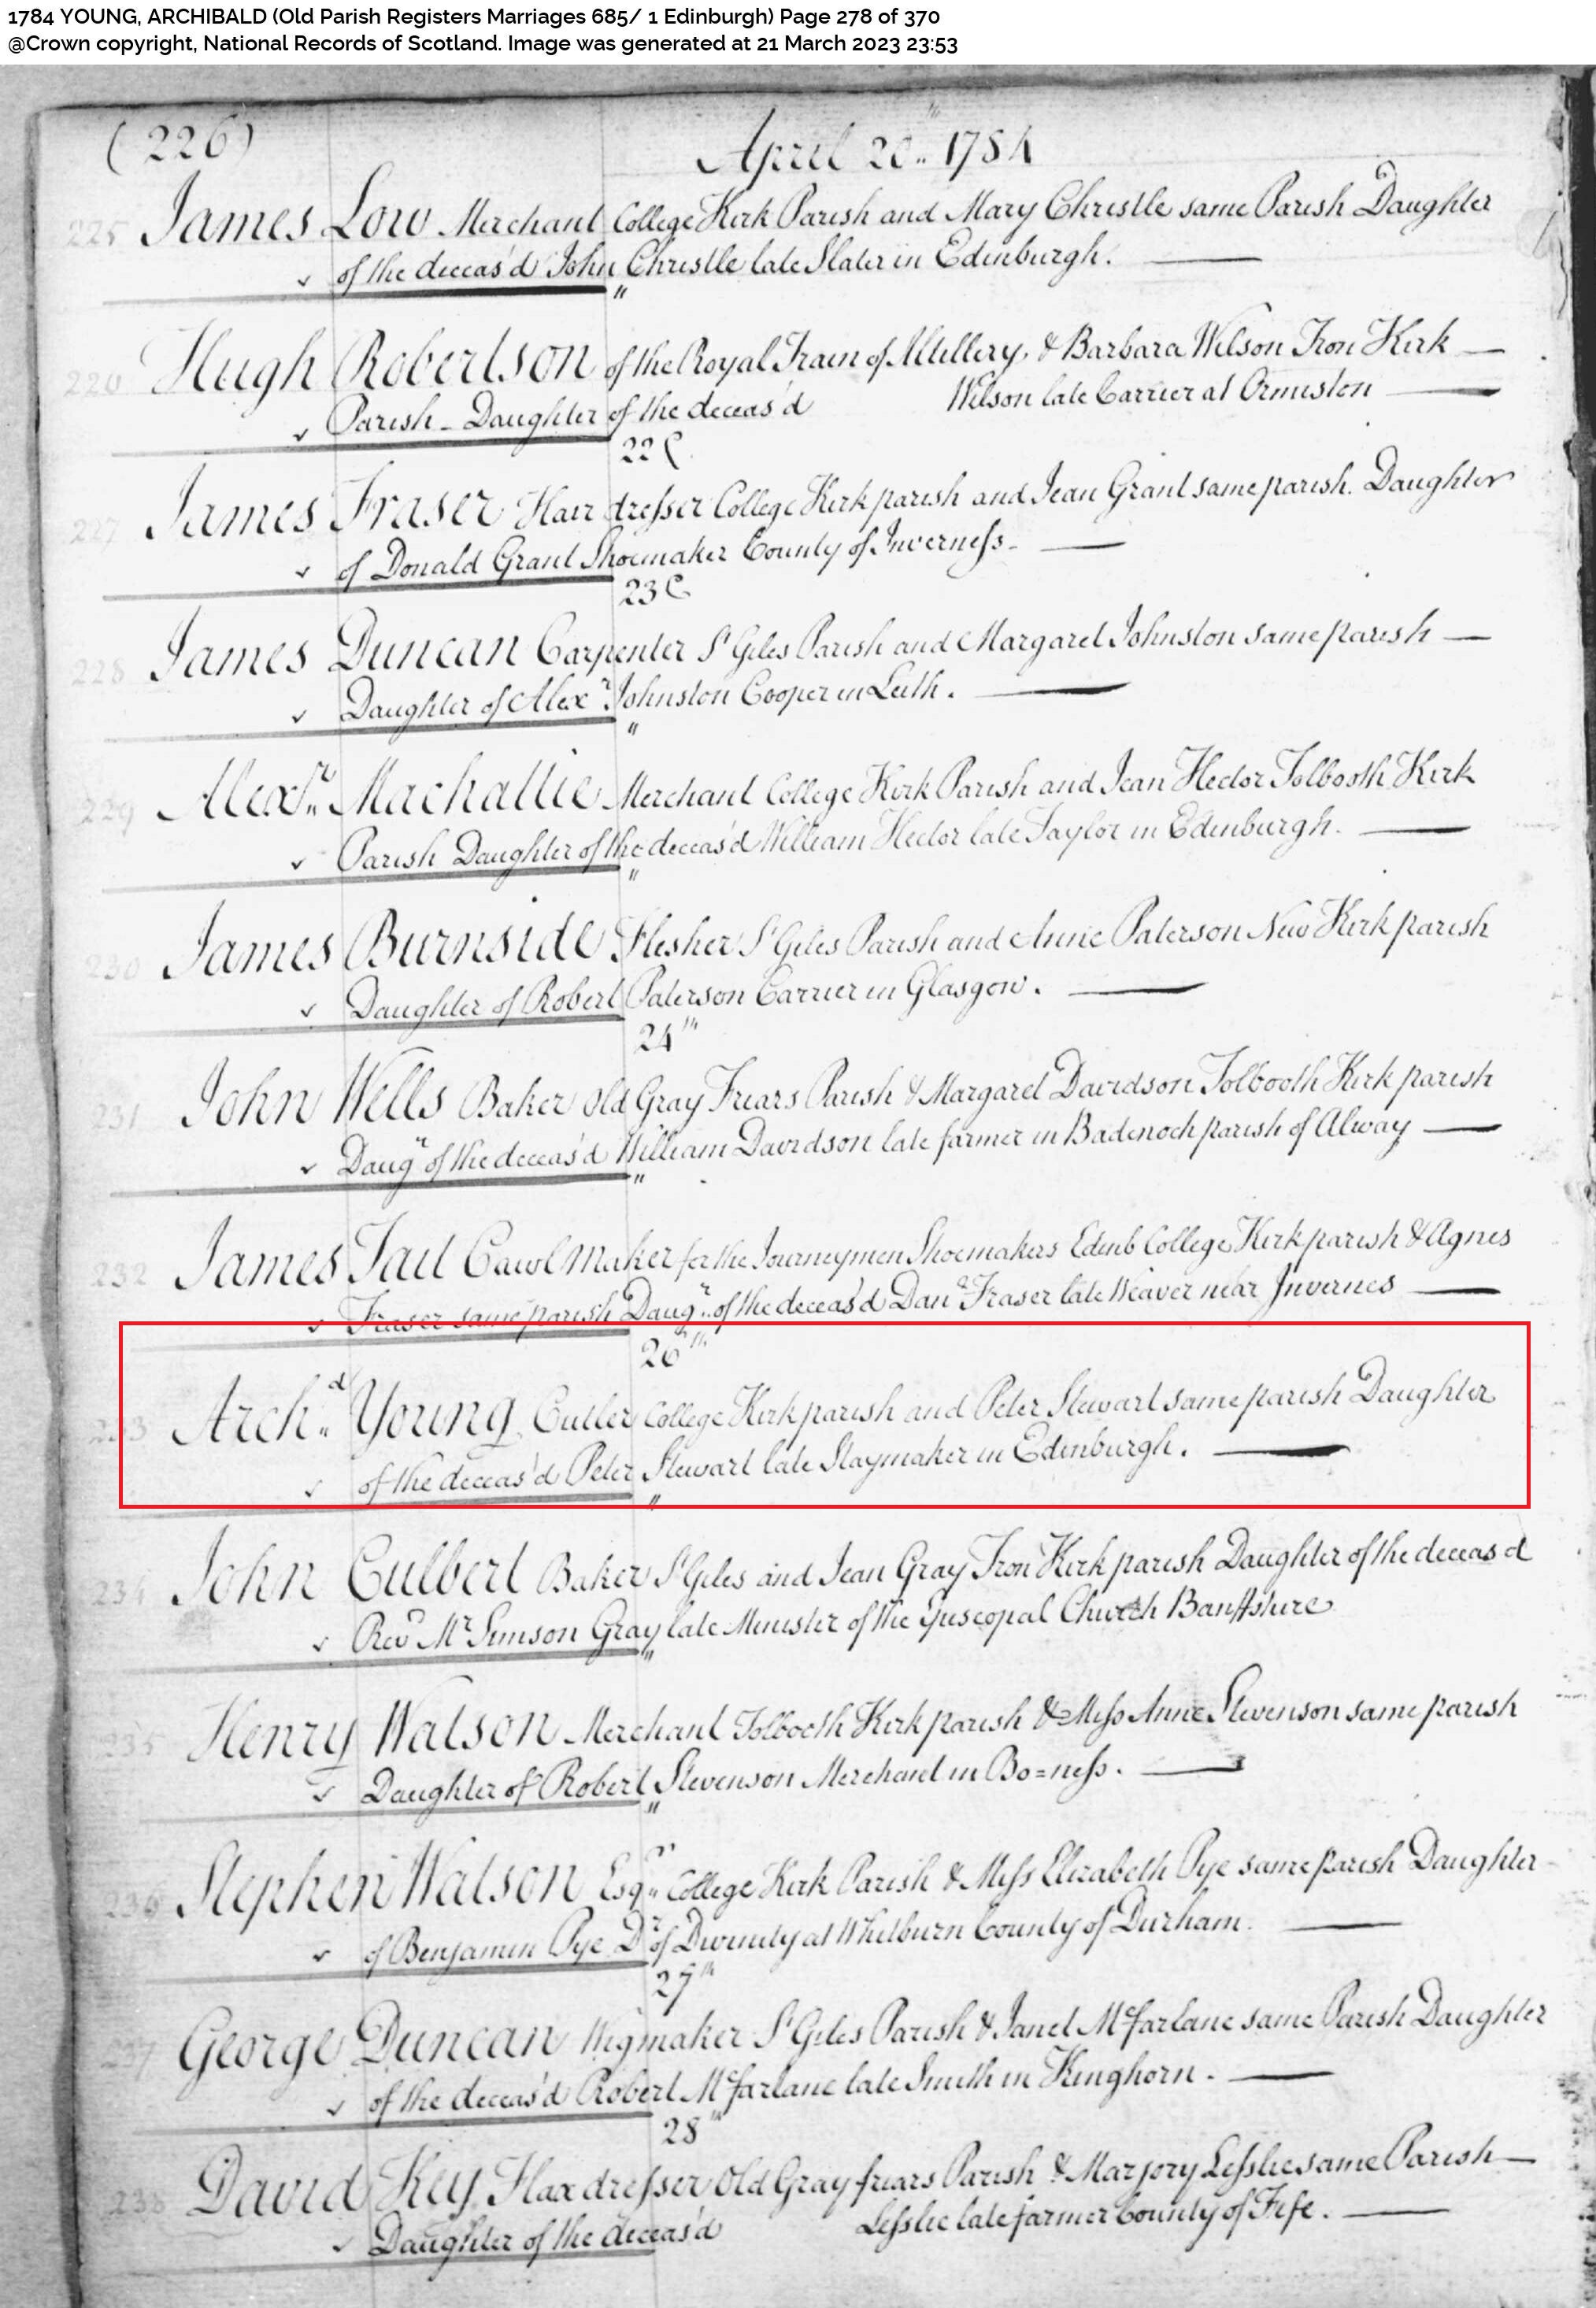 1784 YOUNG, ARCHIBALD (Old Parish Registers Marriages 685/ 1 Edinburgh) Page 278 of 370
@Crown copyright, National Records of Scotland. Image was generated at 21 March 2023 23:53
(226) April 20th 1784
225 James Low Merchant College Kirk Parish and Mary Christle same Parish Daughter
of the deceas'd John Christle late Slater in Edinburgh.
"
226 Hugh Robertson of the Royal Train of Altillery, & Barbara Wilson Tron Kirk
Parish Daughter of the deceas'd Wilson late Carrier at Ormiston
22
227 James Fraser Hair dresser College Kirk parish and Jean Grant same parish. Daughter
of Donald Grant Shoemaker County of Inverness
23
228 James Duncan Carpenter St Giles Parish and Margaret Johnston same parish
Daughter of Alexr. Johnston Cooper in Leith.
"
229 Alexr. Machattie Merchant College Kirk Parish and Jean Hector Tolbooth Kirk
Parish Daughter of the deceas'd William Hector late Taylor in Edinburgh.
"
230 James Burnside Flesher St Giles Parish and Anne Paterson New Kirk parish
Daughter of Robert Paterson Carrier in Glasgow.
24th
231 John Wells Baker Old Gray Friars Parish & Margaret Davidson Tolbooth Kirk parish
Daugr of the deceas'd William Davidson late farmer in Badenoch parish of Alway
"
232 James Tait maker for the Journeymen Shoemakers Edinb College Kirk parish & Agnes
Fraser same parish Daugr. of the deceas'd Danl Fraser late Weaver near Invernes
26th
233 Archd. Young Cutler College Kirk parish and Peter Stewart same parish Daughter
of the deceas'd Peter Stewart late Staymaker in Edinburgh.
"
234 John Culbert Baker St Giles and Jean Gray Tron Kirk parish Daughter of the deceas'd
Revd Mr Simson Gray late Minister of the Episcopal Church Banffshire
"
235 Henry Watson Merchant Tolbooth Kirk parish & Miss Anne Stevenson same parish
Daughter of Robert Stevenson Merchant in Bo=ness.
"
236 Stephen Watson Esqr. College Kirk Parish & Miss Elizabeth Pye same parish Daughter
of Benjamin Pye Dr of Divinity at Whitburn County of Durham.
27th
237 George Duncan Wigmaker St Giles Parish & Janet Mcfarlane same Parish Daughter
of the deceas'd Robert Mcfarlane late Smith in Kinghorn.
28th
238 David Key Flax dresser Old Gray friars Parish & Marjory Lesslie same Parish
Daughter of the deceas'd Lesslie late farmer County of Fife.